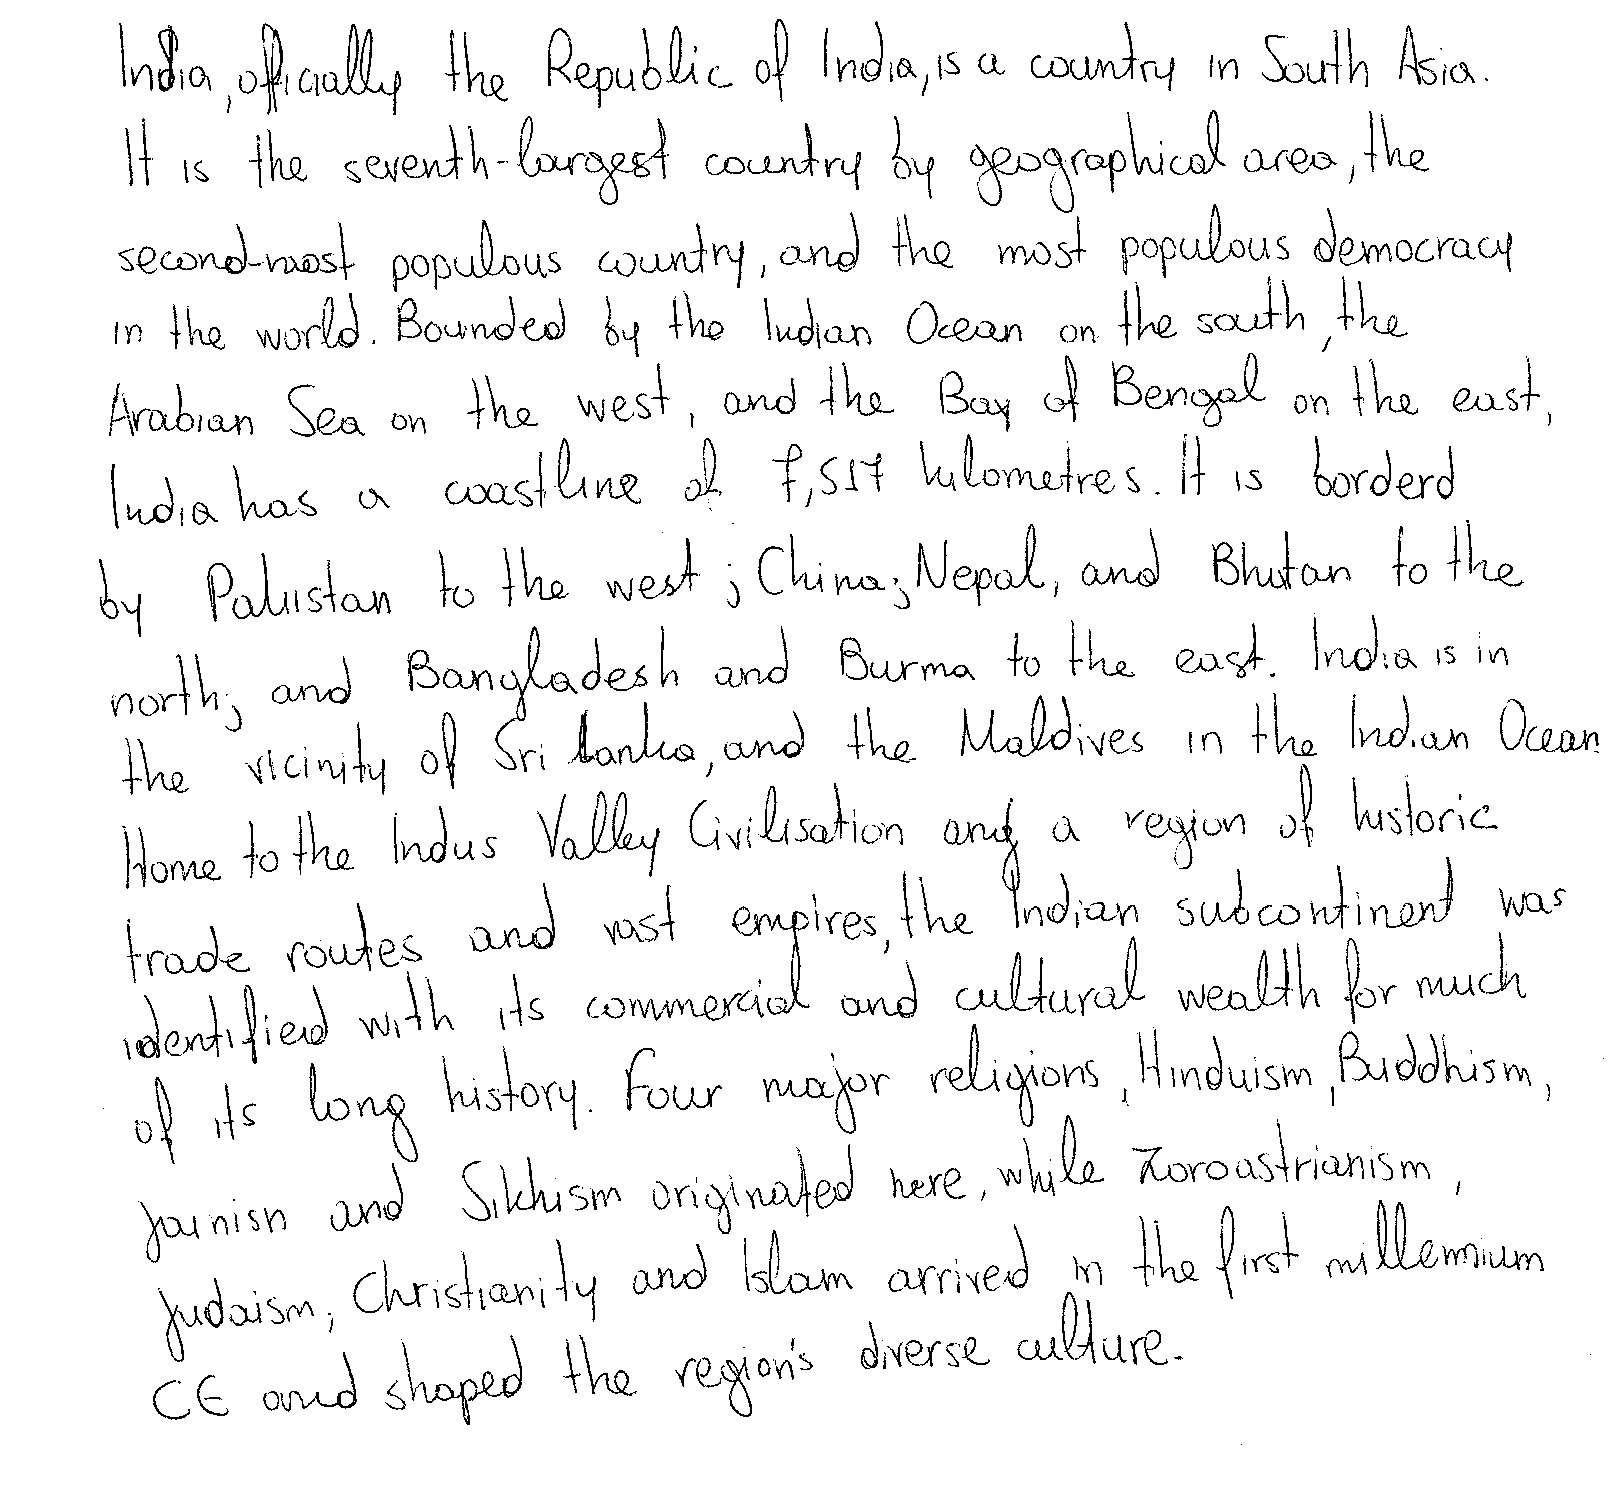 India, officially the Republic of India, is a country in South Asia.
It is the seventh-largest country by geographical area, the
second-most populous country, and the most populous democracy
in the world. Bounded by the Indian Ocean on the south, the
Arabian Sea on the west, and the Bay of Bengal on the east,
India has a coastline of 7,517 kilometres. It is borderd
by Pakistan to the west; China; Nepal, and Bhutan to the
north; and Bangladesh and Burma to the east. India is in
the vicinity of Sri Lanka, and the Maldives in the Indian Ocean
Home to the Indus Valley Civilisation and a region of historic
trade routes and vast empires, the Indian subcontinent was
identified with its commercial and cultural wealth for much
of its long history. Four major religions, Hinduism, Buddhism,
Jainism and Sikhism originated here, while Zoroastrianism,
Judaism, Christianity and Islam arrived in the first millennium
CE and shaped the region's diverse culture.